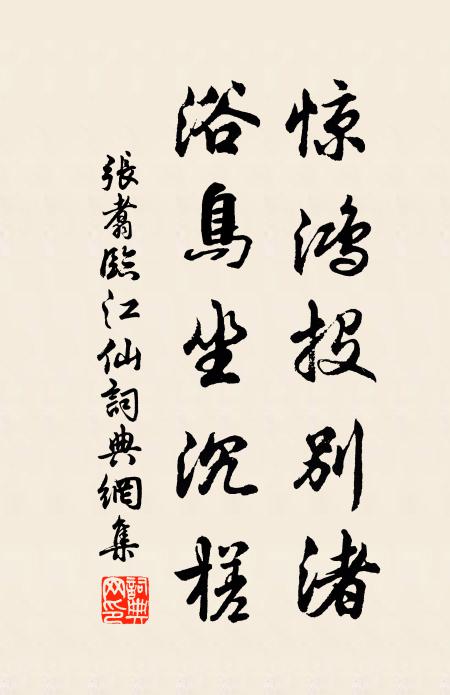 惊鸿投别渚
浴鳥坐沉槎
張翥臨江仙詞典網集
詞典网印